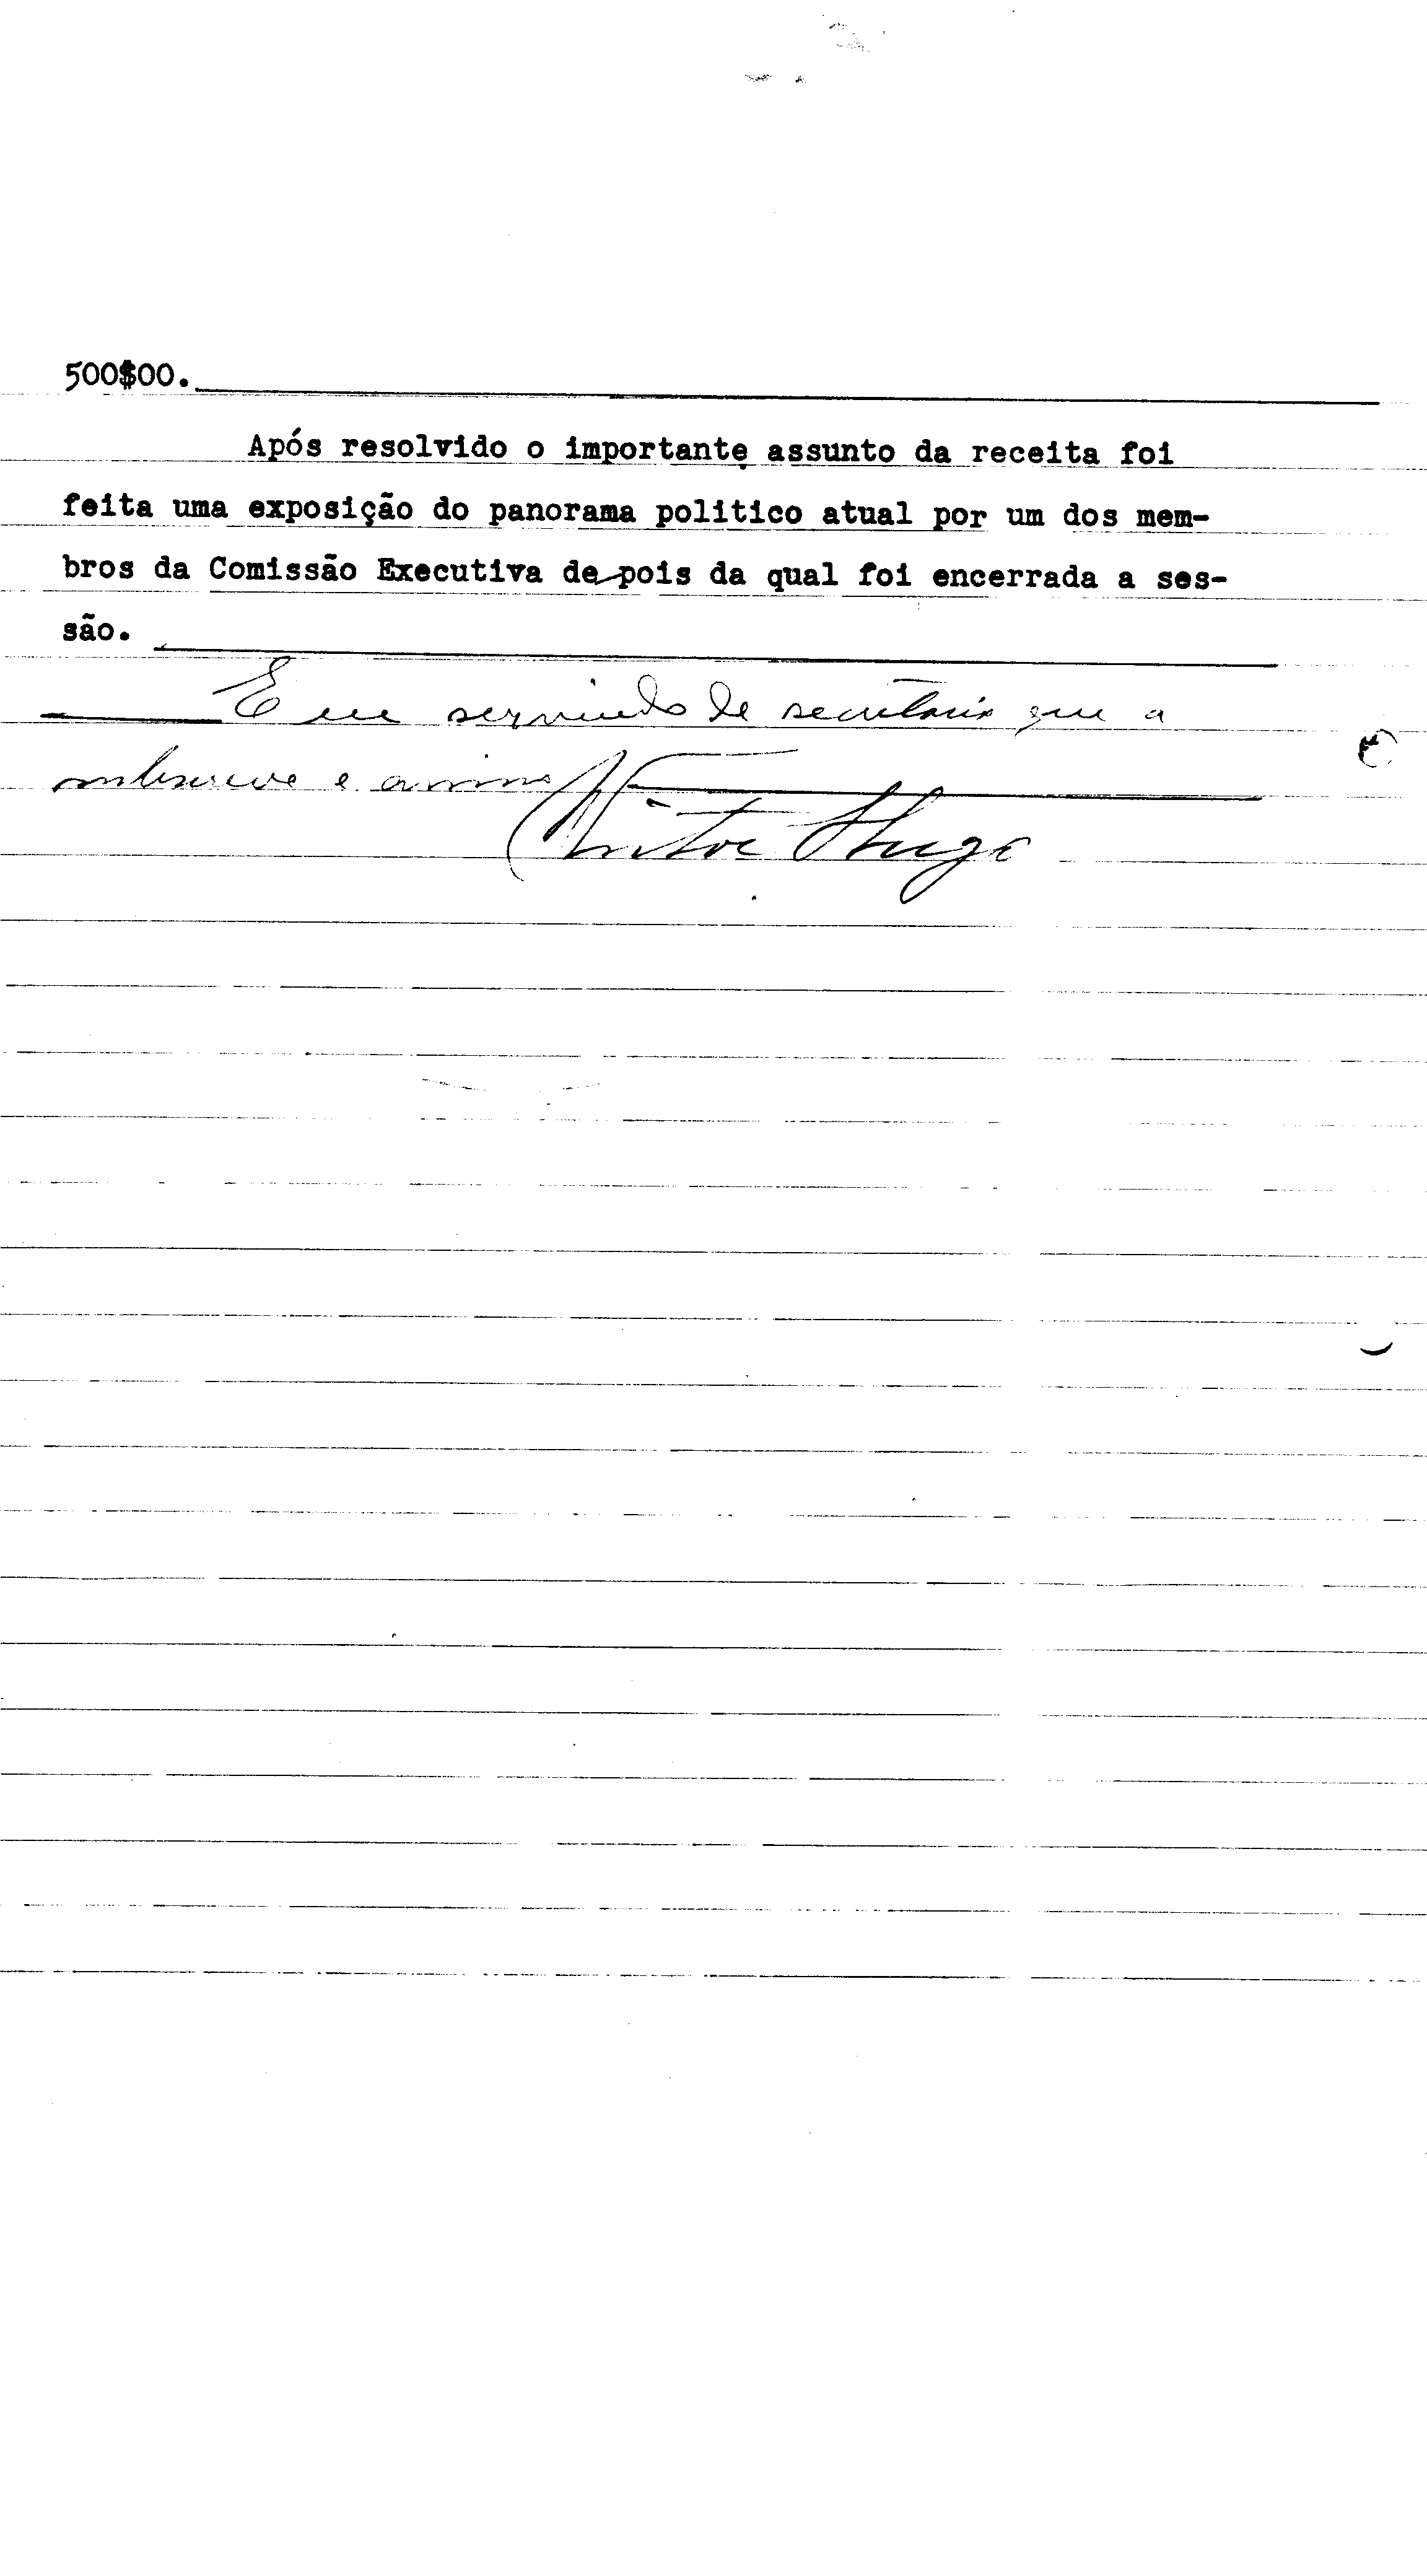 500$00.
Após resolvido o importante assunto da receita foi
feita uma exposição do panorama politico atual por um dos mem-
bros da Comissão Executiva depois da qual foi encerrada a ses-
são.
E eu servindo de secretário que a
subscrevo e assino
Victor Hugo